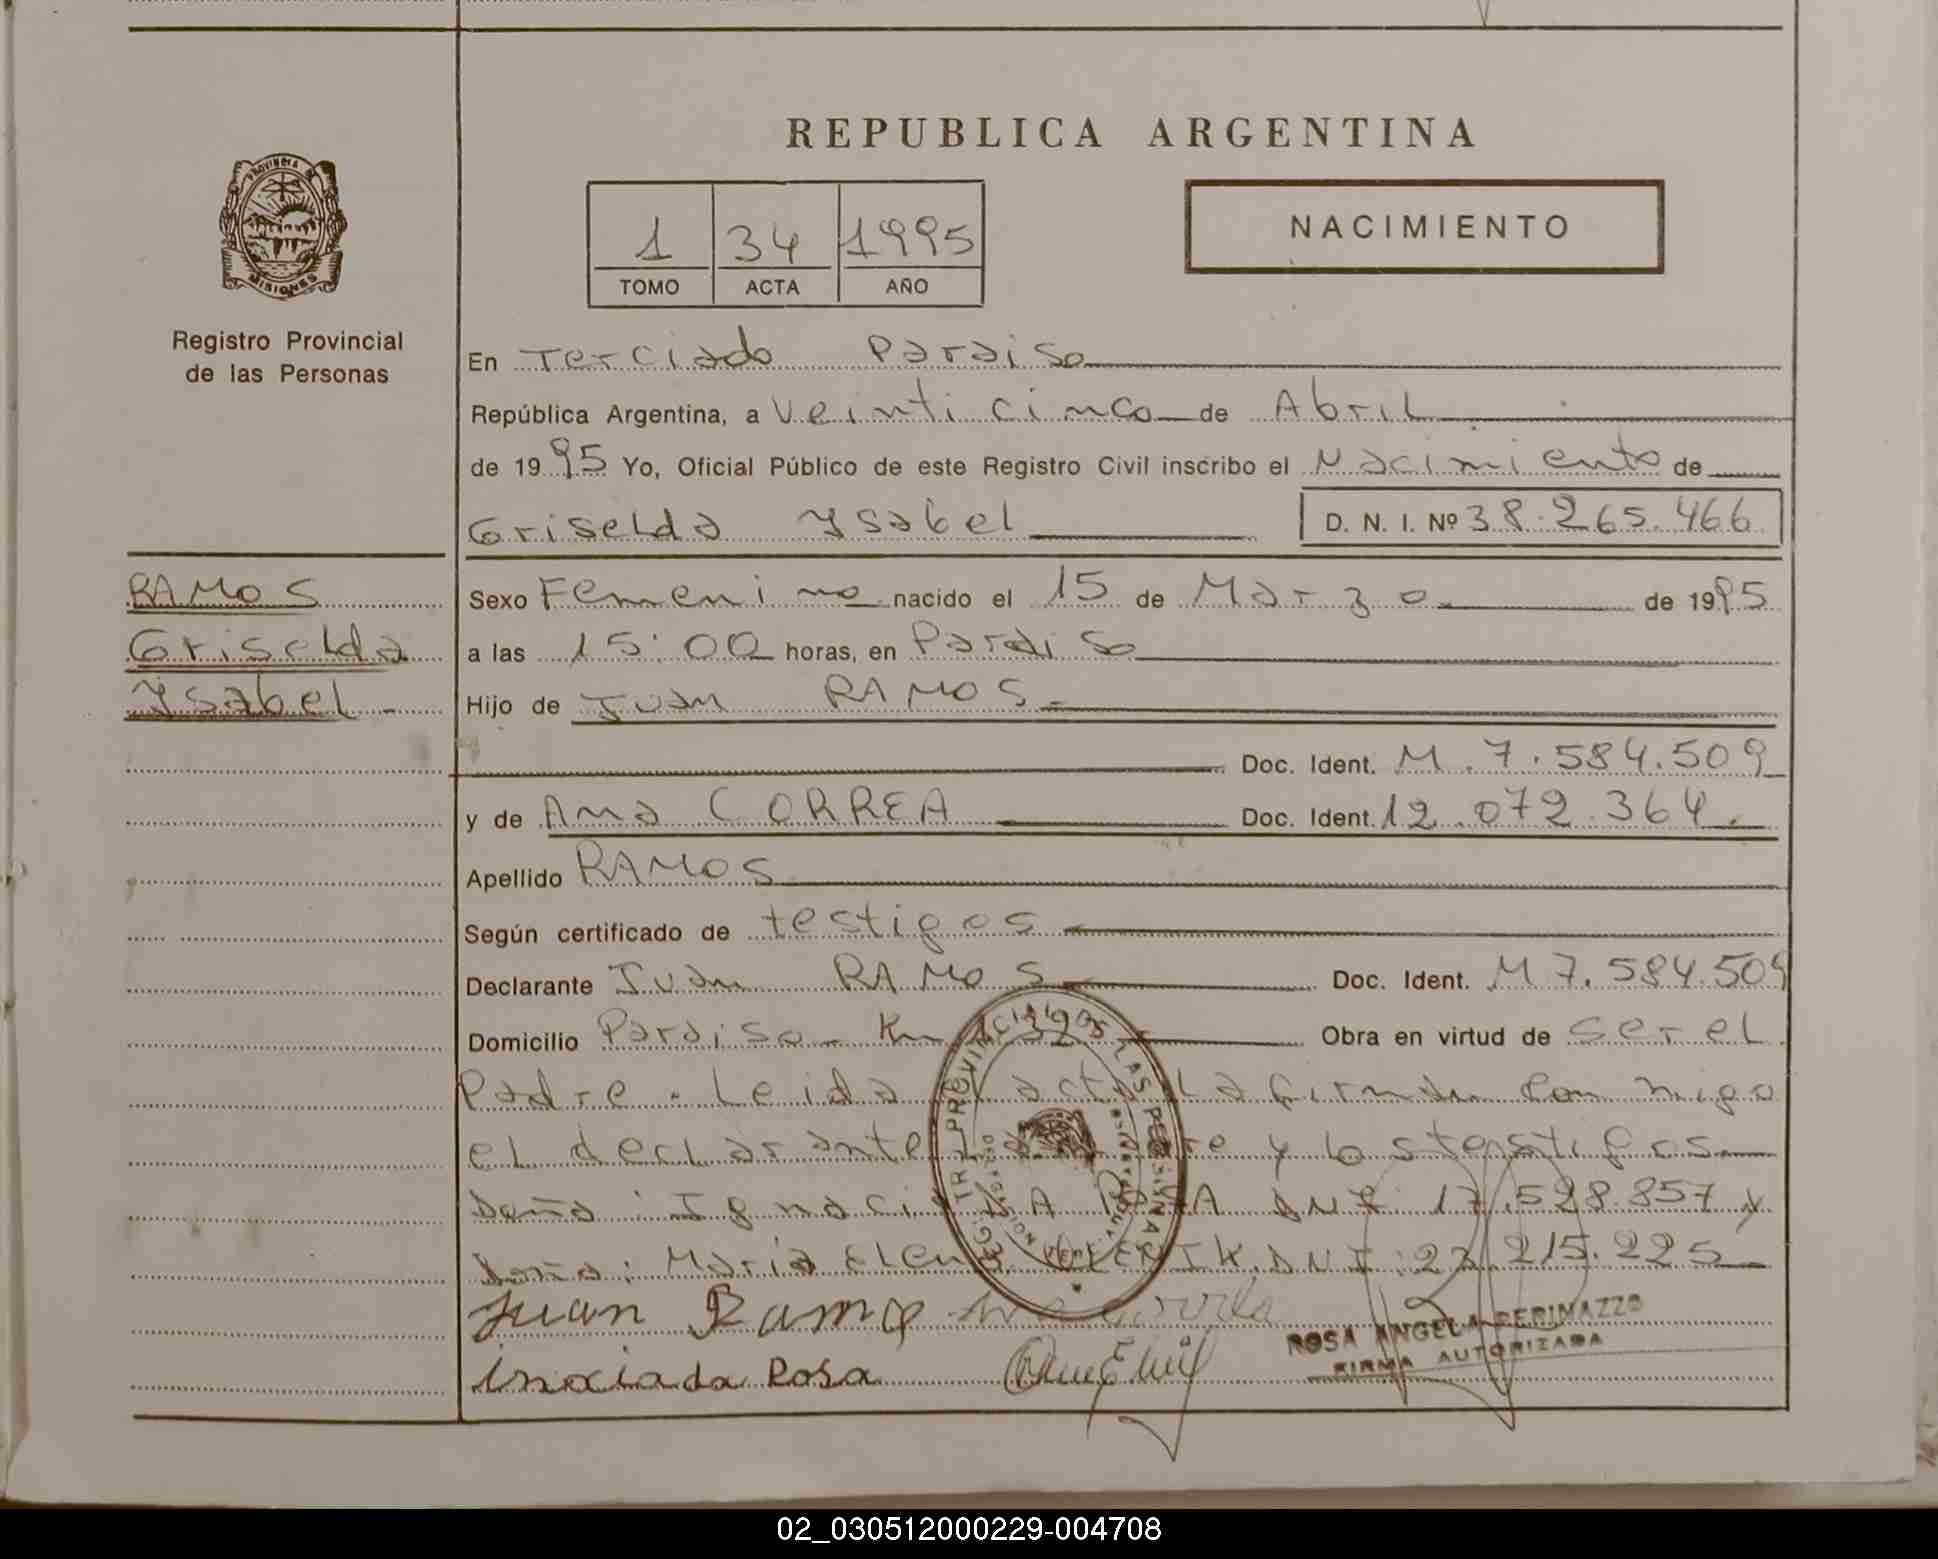 REPUBLICA ARGENTINA
PROVINCIA DE
MISIONES
Registro Provincial
de las Personas
1 34 1995
TOMO ACTA AÑO
NACIMIENTO
En Terciado Paraiso
República Argentina, a Veinti cinco de Abril
de 1995 Yo, Oficial Público de este Registro Civil inscribo el Nacimiento de
Griselda Ysabel D. N. I. Nº 38.265.466
RAMOS
Griselda
Ysabel -
Sexo Femenino nacido el 15 de Marzo de 1995
a las 15:00 horas, en Paraiso
Hijo de Juan RAMOS
Doc. Ident. M. 7.584.509
y de Ana CORREA Doc. Ident. 12.072.364.
Apellido RAMOS
Según certificado de testigos
Declarante Juan RAMOS Doc. Ident. M 7.584.509
Domicilio Paraiso - Km 1329 Obra en virtud de ser el
Padre. Leida acta La firman Con migo
el declarante y los testigos
Doña: DNI: 17.528.857 y
Doña: Maria Elena DNI: 23.215.225
Juan Ramo
Rosa
ROSA ANGELA PERINAZZO
FIRMA AUTORIZADA
02_030512000229-004708